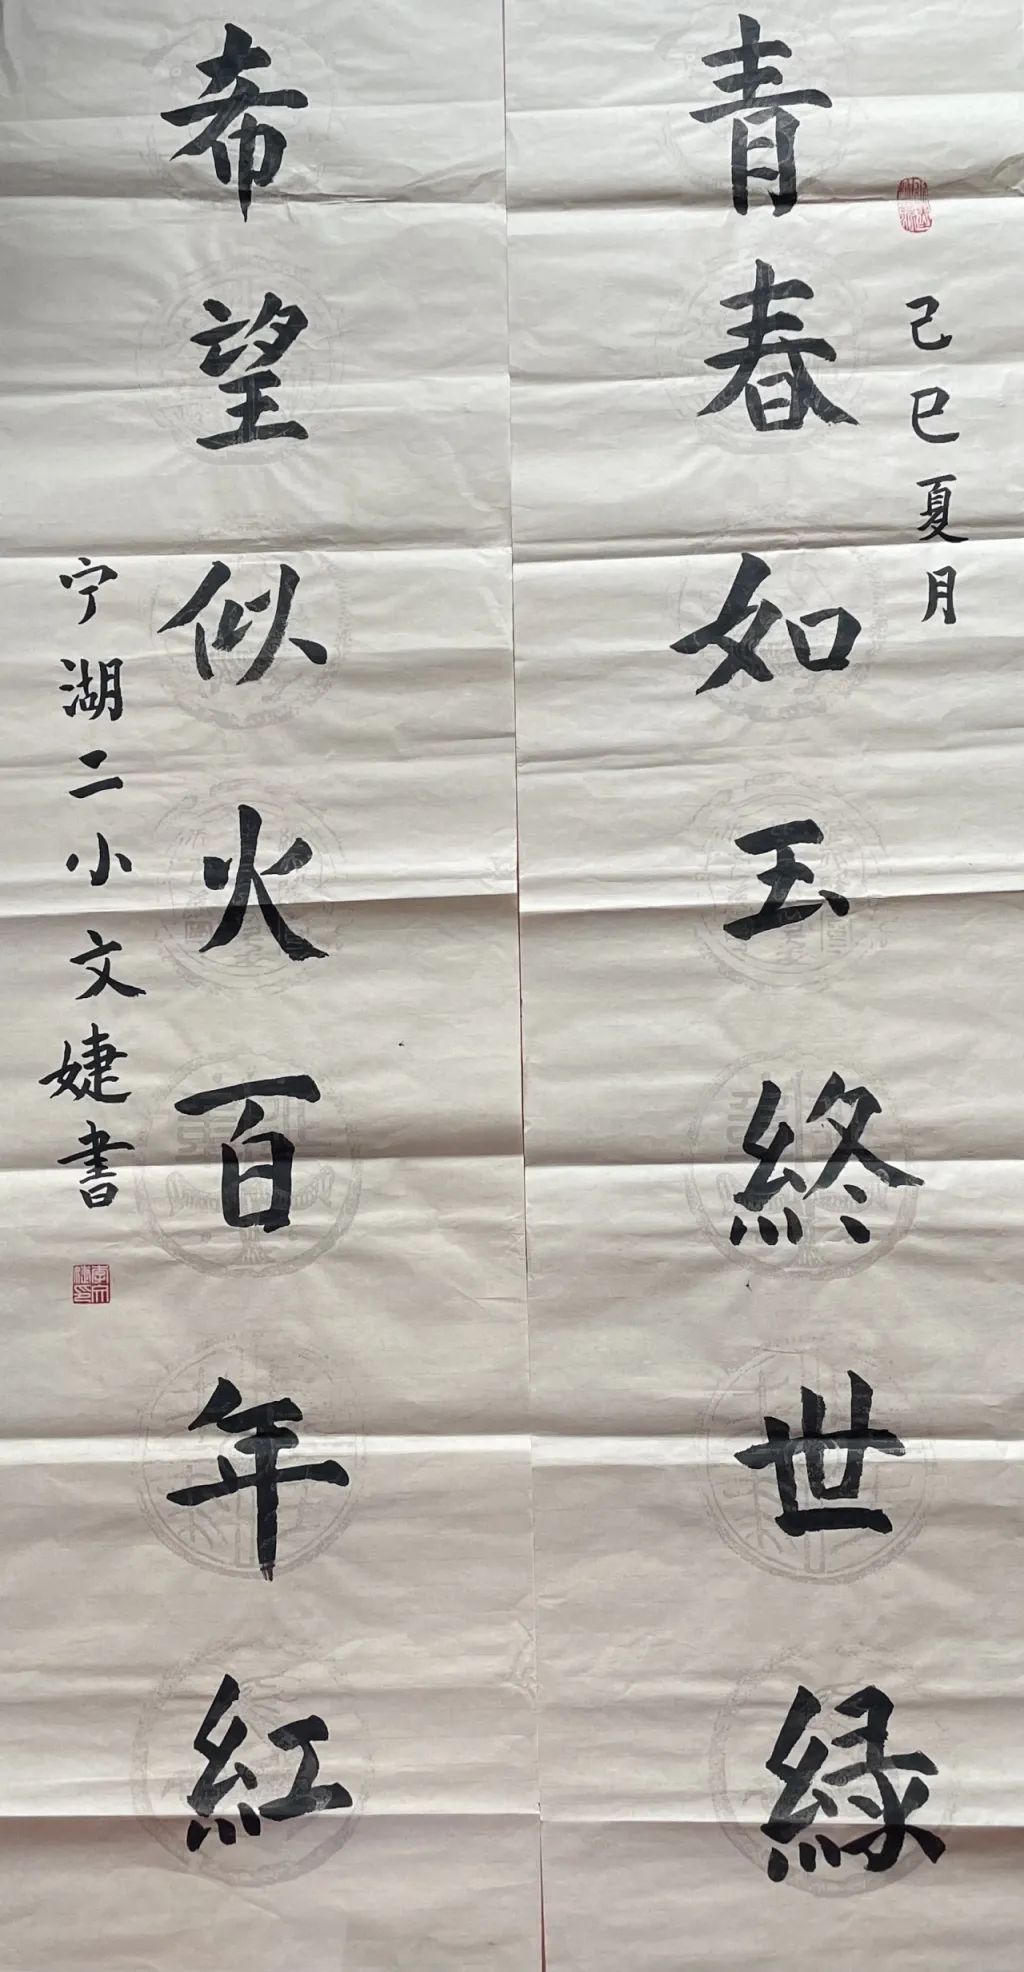 己巳夏月
青春如玉終世緑
希望似火百年紅
宁湖二小文婕書